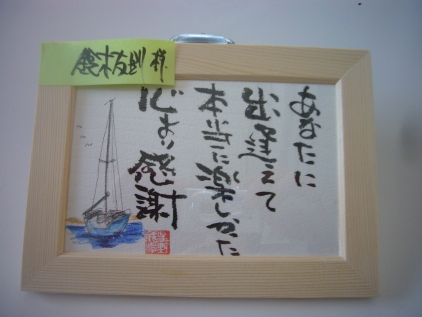 鈴木友
様
あなたに
出逢えて
本当に楽しかった
心より感謝